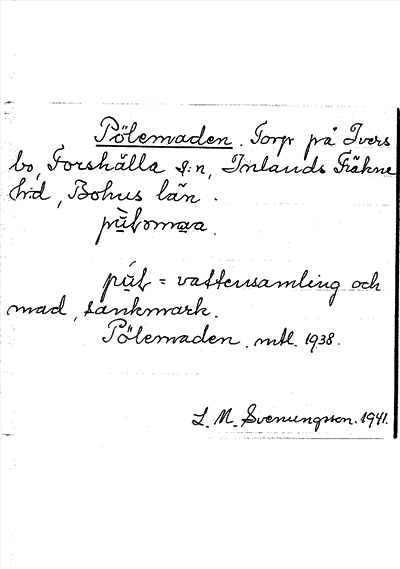 Pölemaden. Torp på Ivers
bo, Forshälla s:n, Inlands Fräkne
h:d, Bohus län.

= vattensamling och
mad, sankmark.
Pölemaden. mtl. 1938.
L. M. Svenungsson. 1941.